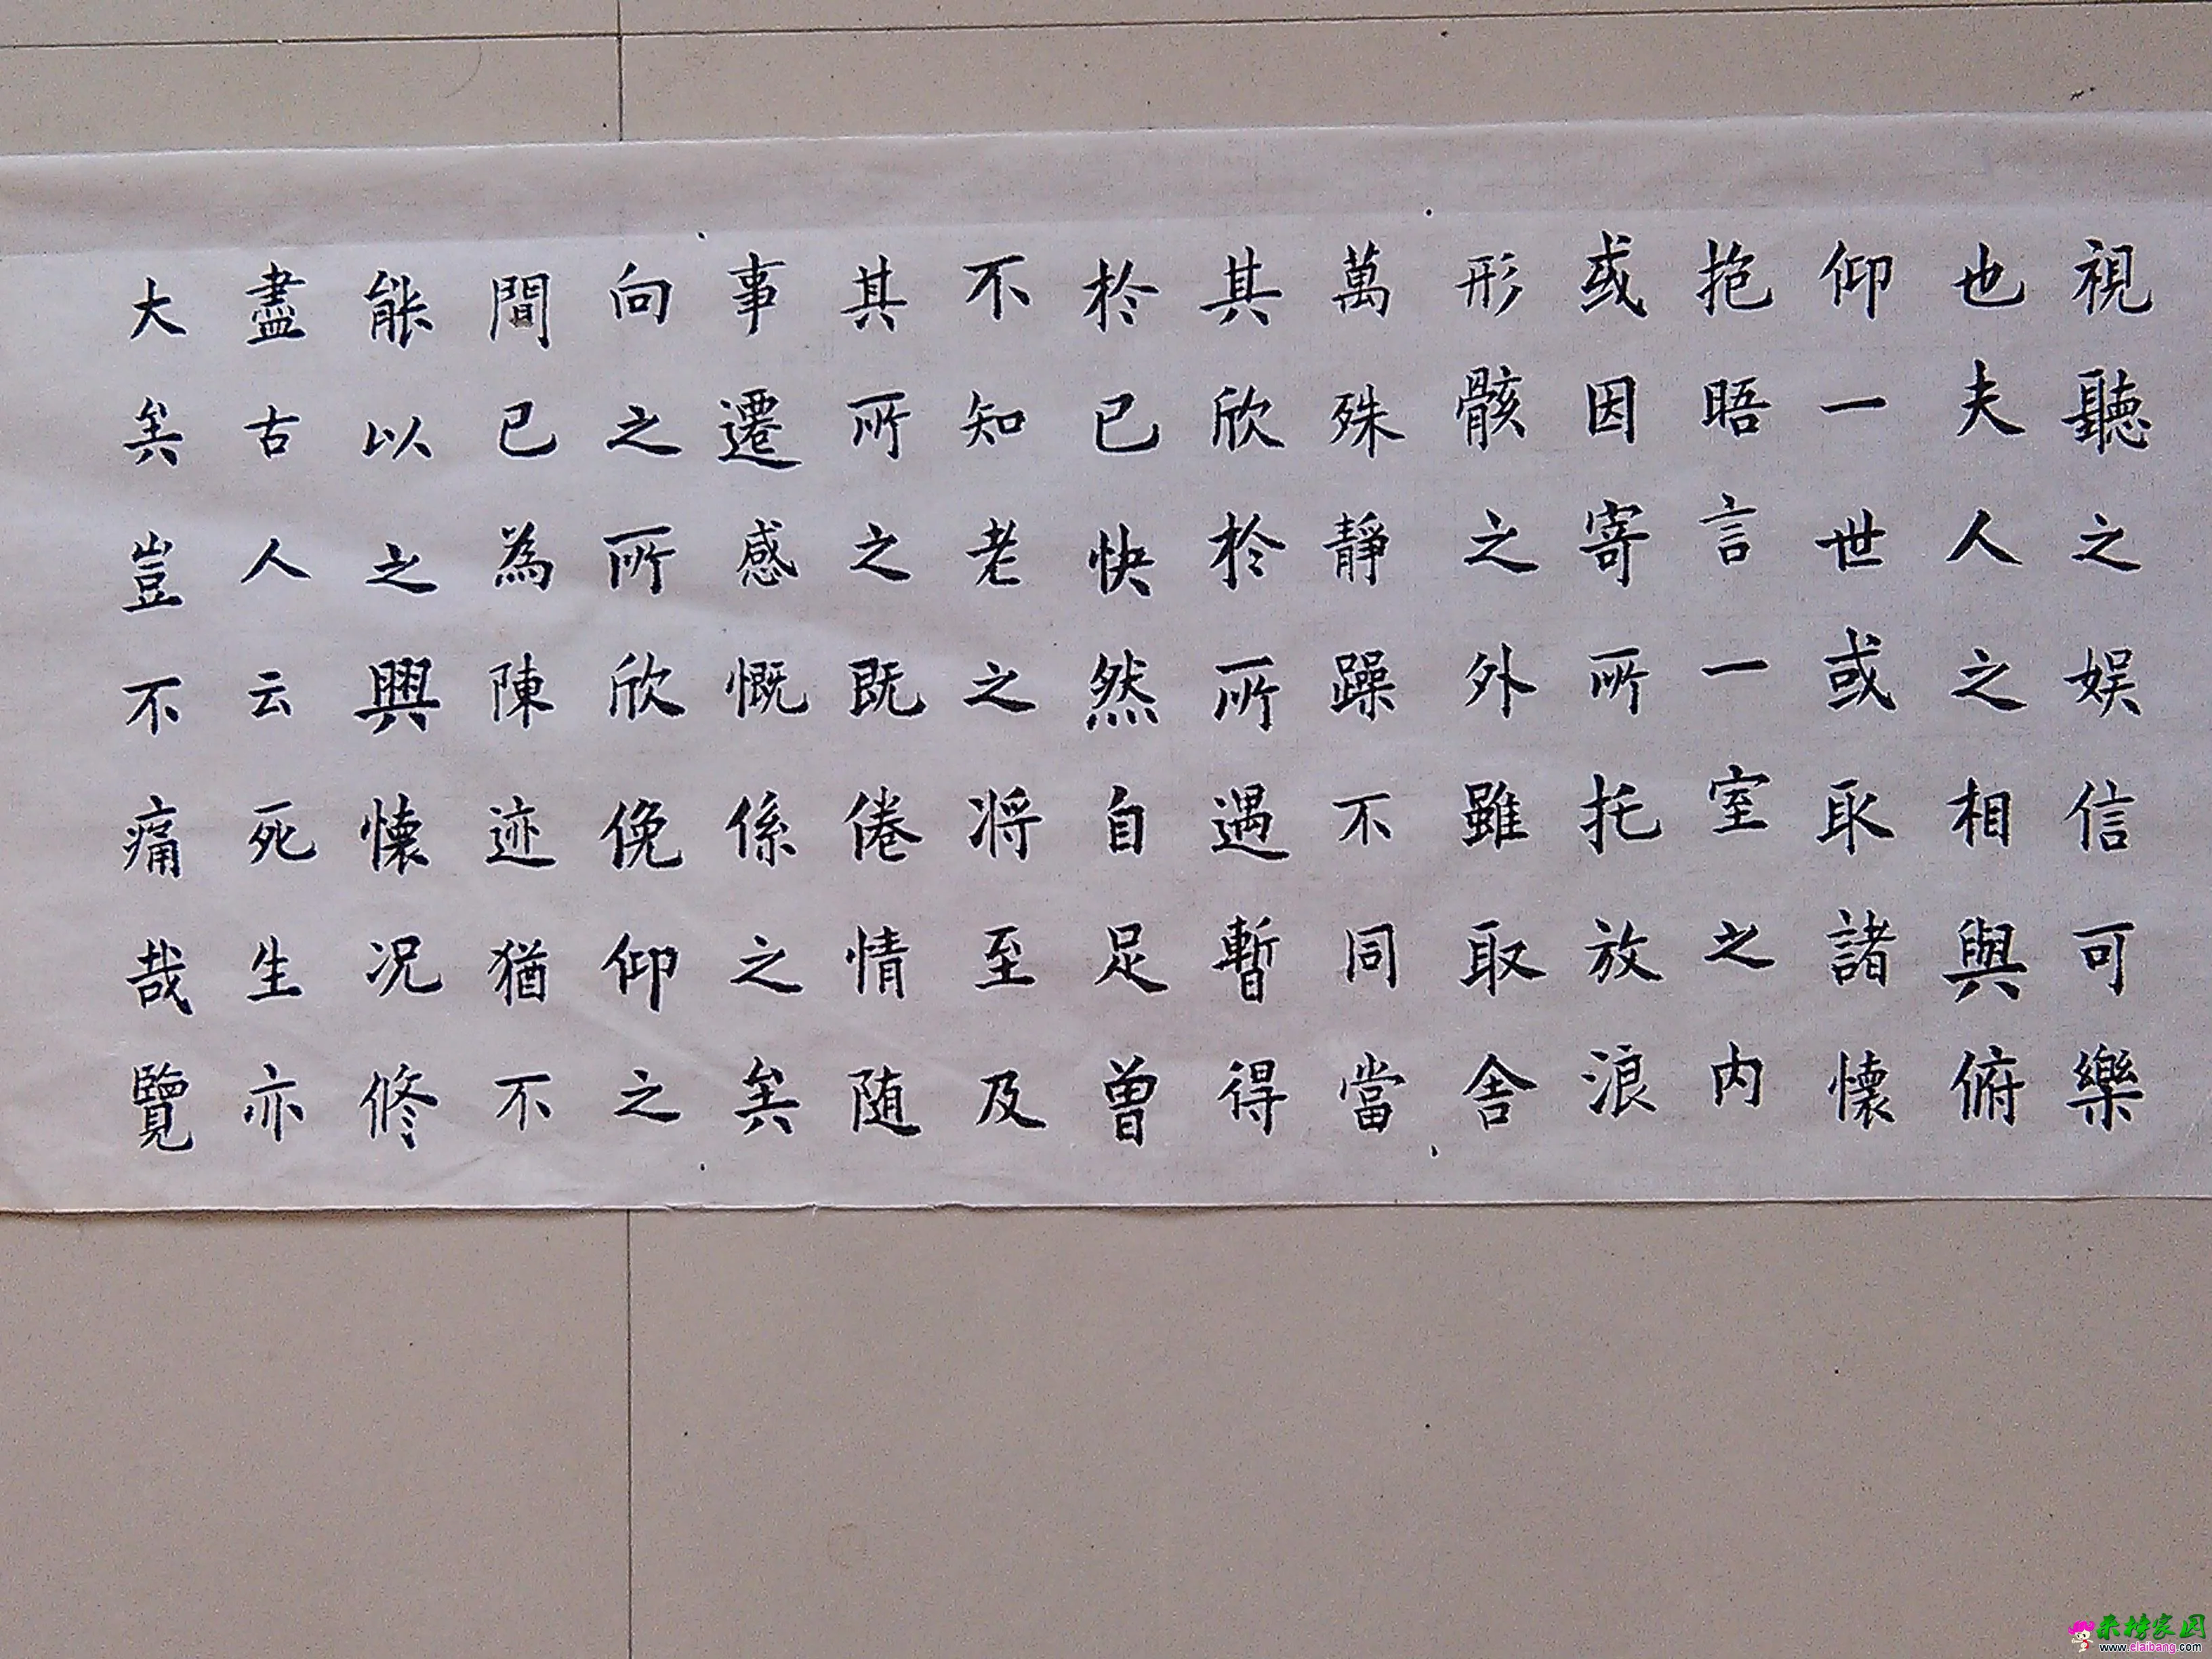 視聽之娱信可樂
也夫人之相與俯
仰一世或取諸懷
抱晤言一室之内
或因寄所托放浪
形骸之外雖取舍
萬殊静躁不同當
其欣於所遇暫得
於已快然自足曾
不知老之将至及
其所之既倦情随
事遷感慨係之矣
向之所欣俛仰之
間已為陳迹猶不
能以之興懷况修
盡古人云死生亦
大矣豈不痛哉覽
来榜家园
www.elaibang.com